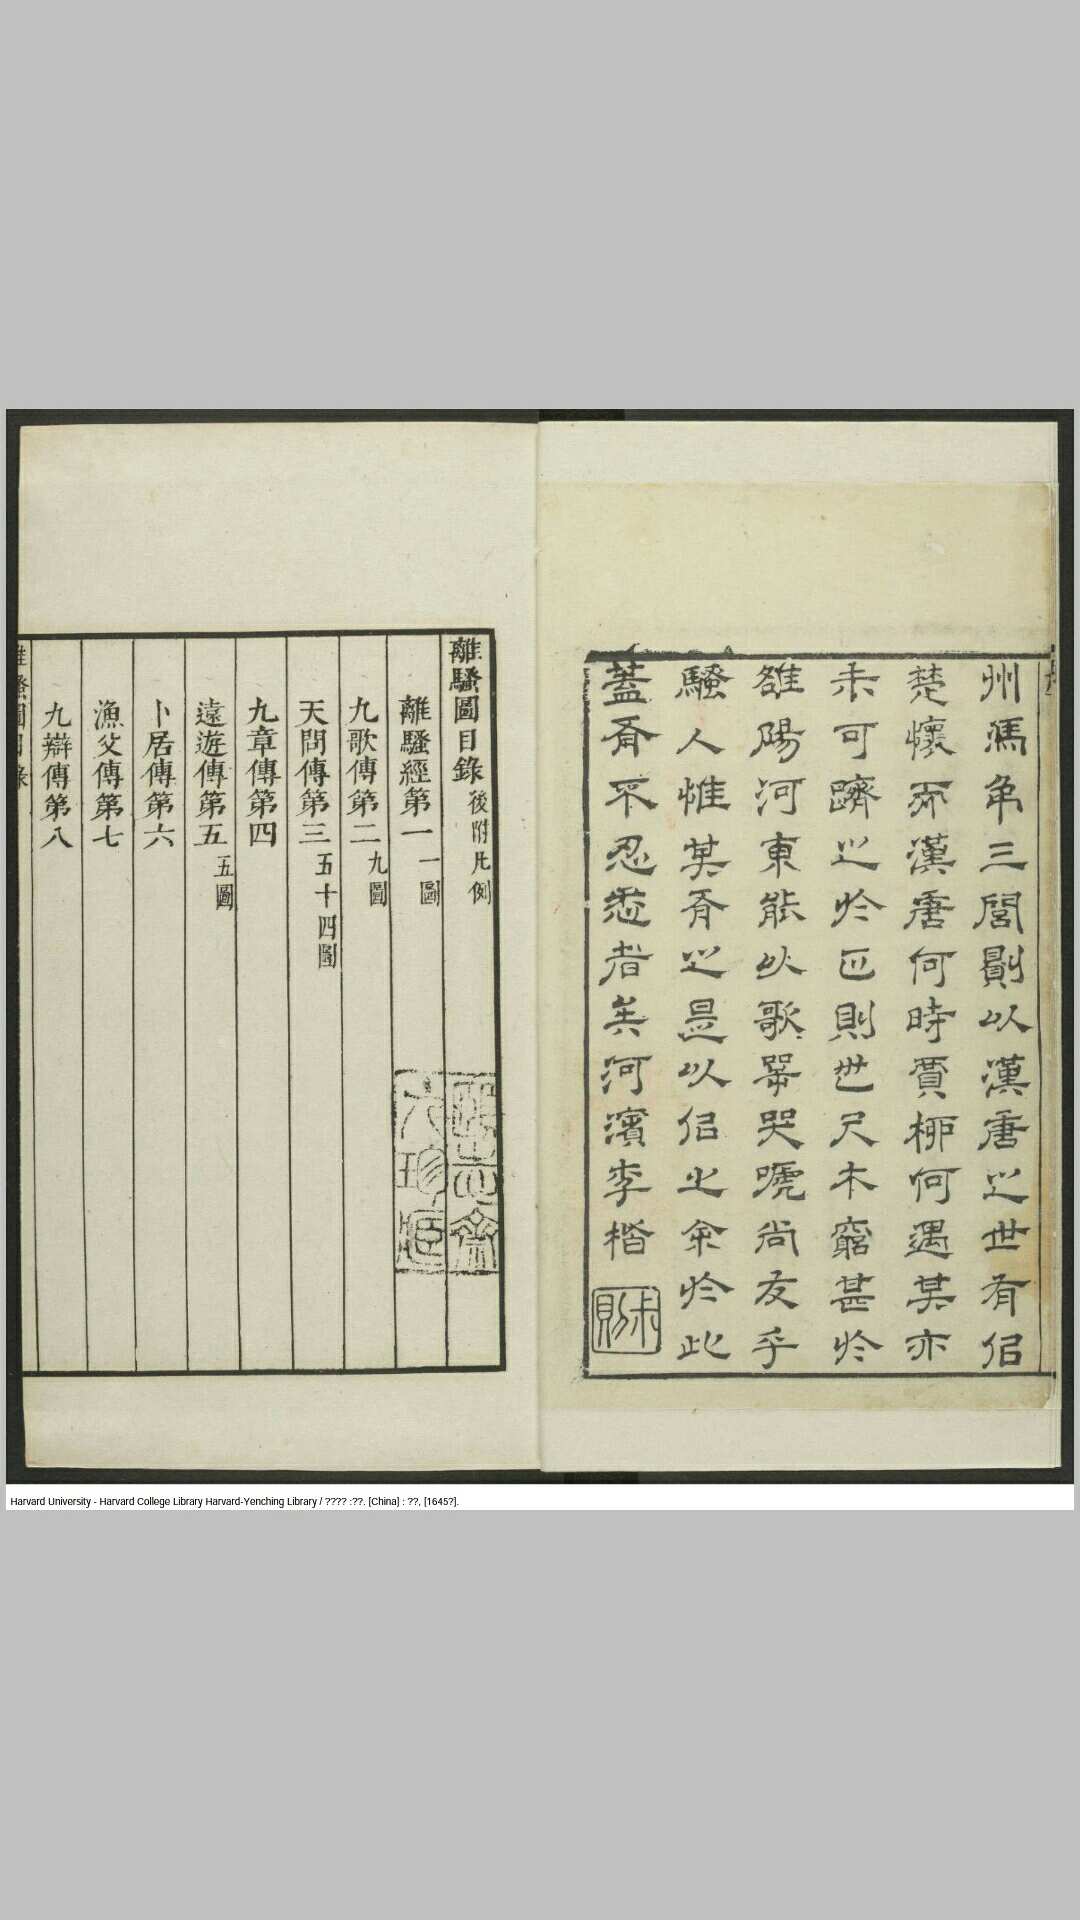 州馮弔三閭劓以漢唐之世有侣
楚懷而漢唐何時賈柳何遇某亦
未可躋之於正則世尺木窮甚於
雒陽河東能以歌器哭嘑尚友乎
騷人惟其有之是以侣之余於此
蓋有不忍悉者矣河濱李楷
離騷圖目錄後附凡例
離騷經第一一圖
九歌傳第二九圖
天問傳第三五十四圖
九章傳第四
遠遊傳第五五圖
卜居傳第六
漁父傳第七
九辯傳第八
離騷圖目錄
Harvard University - Harvard College Library Harvard-Yenching Library / ???? :??. [China] : ??, [1645?].